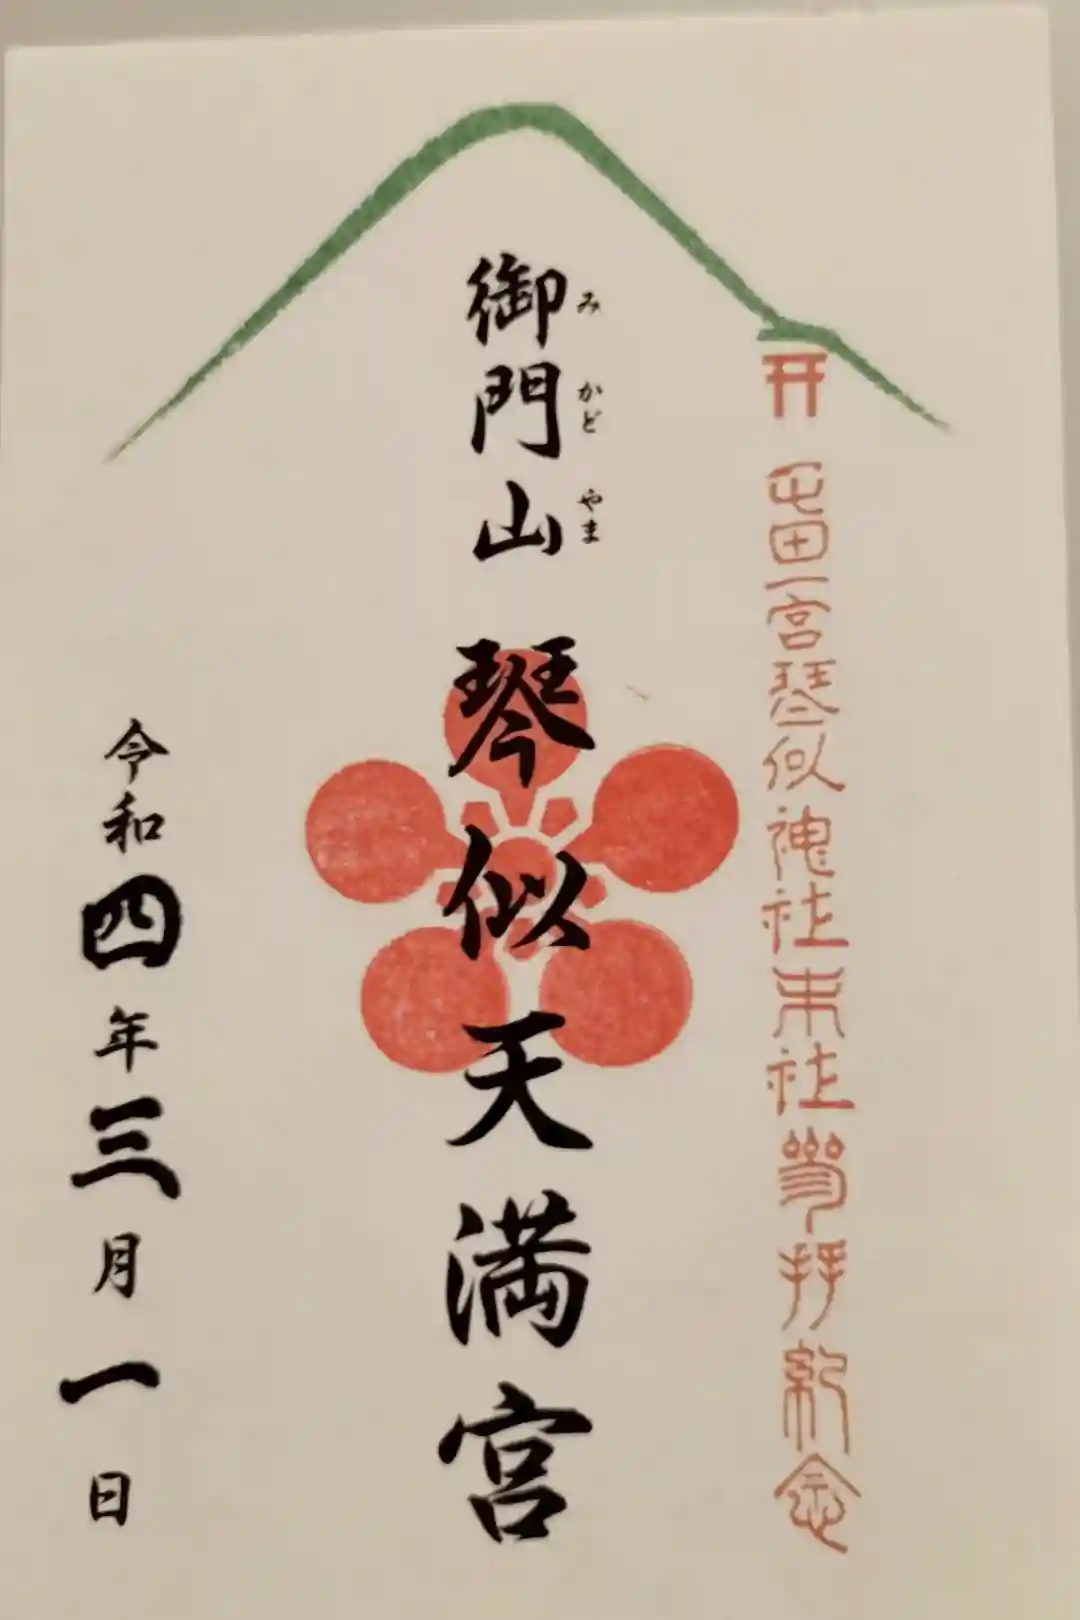 屯田一宮琴似神社末社参拝紀念
みかどやま
御門山 琴似天満宮
令和四年三月一日